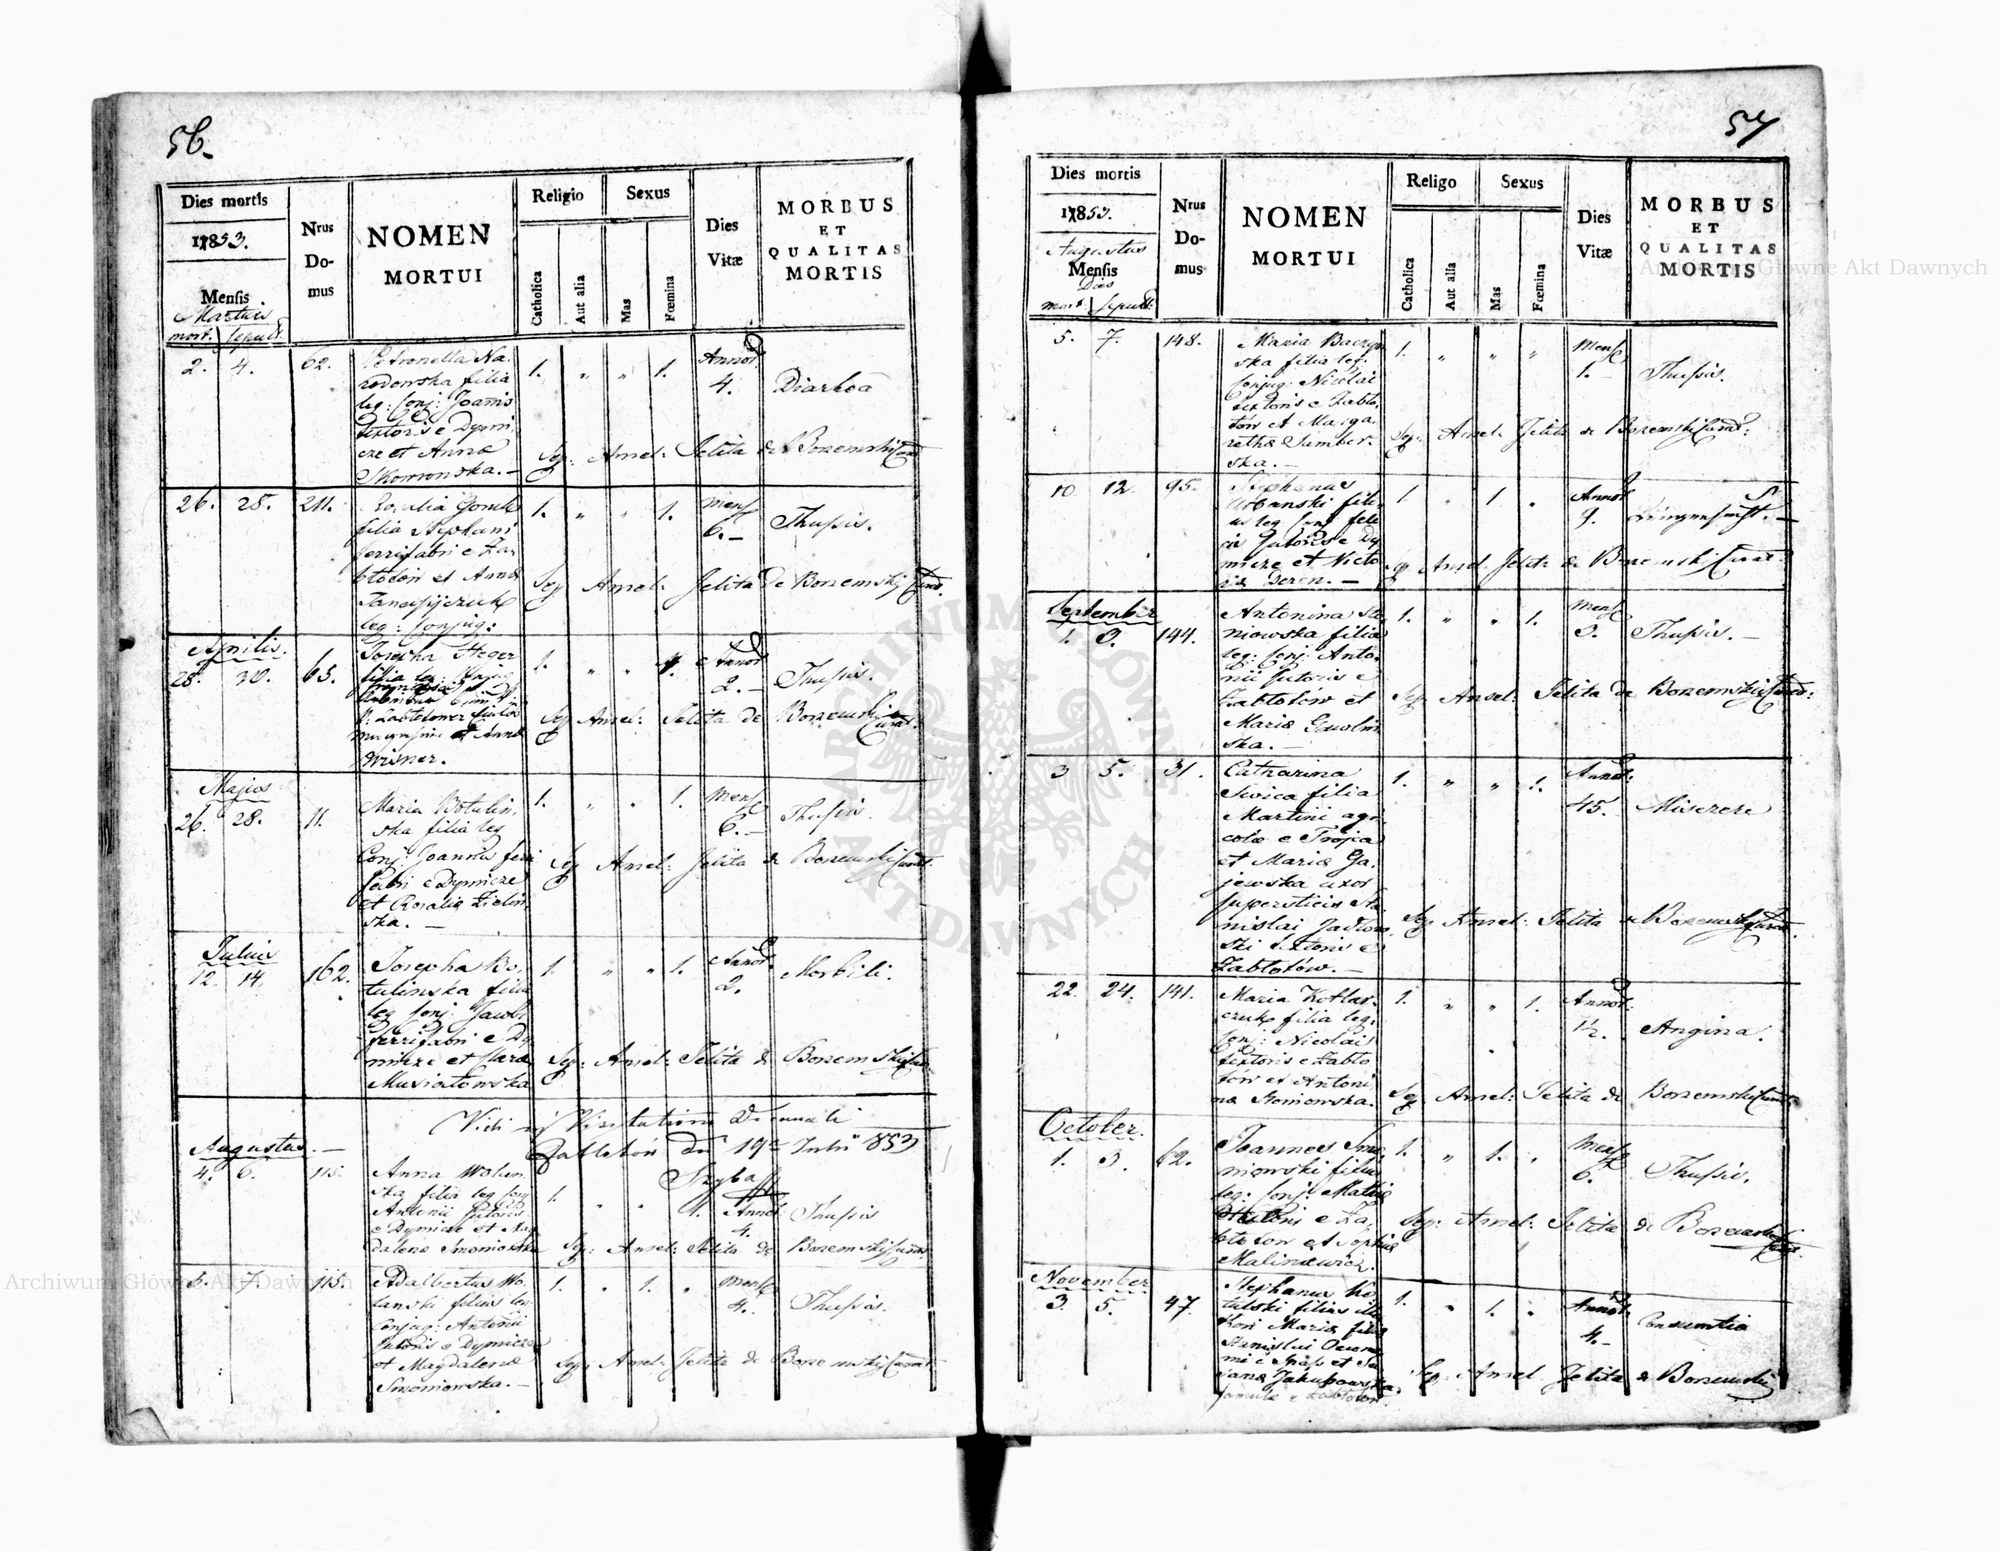 56.
Dies mortis
1853.
Mensis
Martius
mort. sepult.
Nrus
Do-
mus
NOMEN
MORTUI
Religio
Catholica
Aut alia
Sexus
Mas
Fœmina
Dies
Vitæ
MORBUS
ET
QUALITAS
MORTIS
2. 4. 62.
Petronella Na-
rodowska filia
leg: Conj: Joannis
textoris e Dymi-
cze et Anna
Skowronska. —
1. " " 1.
Annor
4.
Diarhea
Sep: Ansel: Jelita de Bozemski Curat
26. 28. 211.
Rosalia
filia Stephani
ferrifabri e Za-
błotów et Anna
leg: Conjug:
1. " " 1.
Mens
6. —
Thussis.
Sep Ansel: Jelita de Bozemski Curat.
Aprilis.
28. 30. 65.
Josepha Steger
filia leg: Conjug
et Anna
Wisner.
1. " " 1.
Annor
2. —
Thussis.
Sep Ansel: Jelita de Bozemski Curat.
Majus
26. 28. 11.
Maria Botulin-
ska filia leg
Conj: Joannis ferri
fabri e Dymicze
et Rosalia Zielin-
ska. —
1. " " 1.
Mens
6. —
Thussis.
Sep Ansel: Jelita de Bozemski Curat.
Julius
12. 14. 162.
Josepha Bo-
tulinska filia
leg Conj: Jacobi
ferrifabri e Dy-
micze et Clara
Musiatowska
1. " " 1.
Annor
2.
Morbili.
Sep: Ansel: Jelita de Bozemski Curat
Vidi in Visitatione Decanali
Zabłotów die 19a Julii 853
Szyba
Augustus. —
4. 6. 115.
Anna Wolan-
ska filia leg Conj
Antonii sutoris
e Dymicze et Mag-
dalena Smoniowska
1. " " 1.
Annor:
4.
Thussis
Sep: Ansel: Jelita de Bozemski Curat
5. 7. 115.
Adalbertus Wo-
lanski filius leg
Conjug: Antonii
sutoris e Dymicze
et Magdalena
Smoniowska. —
1. " 1. "
Mens
4.
Thussis.
Sep Ansel: Jelita de Bozemski Curat
57
Dies mortis
1853.
Augustus
Mensis
Dies
mort sepult:
Nrus
Do-
mus
NOMEN
MORTUI
Religo
Catholica
Aut alia
Sexus
Mas
Fœmina
Dies
Vitæ
MORBUS
ET
QUALITAS
MORTIS
5. 7. 148.
Maria Baczyn-
ska filia leg:
Conjug: Nicolai
textoris e Zabło-
tów et Marga-
retha Sambor-
ska. —
1. " " "
Mens
1. —
Thussis.
Sep: Ansel: Jelita de Bozemski Curat:
10. 12. 95.
Stephanus
Urbanski fili-
us leg Conj Feli-
cis sutoris e Dy-
micze et Victo-
ria Deren. —
1. " 1. "
Annor
9.
Lungensucht. —
Sep Ansel Jelita de Bozemski Curat
September
1. 3. 144.
Antonina Sto-
niowska filia
leg: Conj: Anto-
nii sutoris e
Zabłotów et
Maria Gawolin-
ska. —
1. " " 1.
Mens
3.
Thussis. —
Sep Ansel: Jelita de Bozemski Curat:
3 5. 31.
Catharina
Siwica filia
Martini agri-
colæ e Trojca
et Maria Ga-
jewska uxor
superstitis Sta-
nislai
ski textoris e
Zabłotów. —
1. " " 1.
Annor:
45.
Miserere
Sep Ansel: Jelita de Bozemski Curat.
22. 24. 141.
Maria Kotlar-
czuk filia leg:
Conj: Nicolai
textoris e Zabło-
tow et Antoni-
na Stoniowska.
1. " " 1.
Annor:
1½.
Angina.
Sep Ansel: Jelita de Bozemski Curat.
October.
1. 3. 62.
Joannes Smo-
niowski filius
leg: Conj: Mathia
textoris e Za-
błotow et Sophia
Maliniewicz.
1. " 1. "
Mens
6.
Thussis.
Sep: Ansel: Jelita de Bozemski Curat.
November
3. 5. 47.
Stephanus Ko-
tulski filius ille-
thori Maria filia
Stanislai
et
Jakubowska
famula e Zabłotów.
1. " 1. "
Annor:
4. —
Consumtio
Sep: Ansel Jelita de Bozemski
ARCHIWUM GŁÓWNE AKT DAWNYCH
Archiwum Główne Akt Dawnych
Archiwum Główne Akt Dawnych